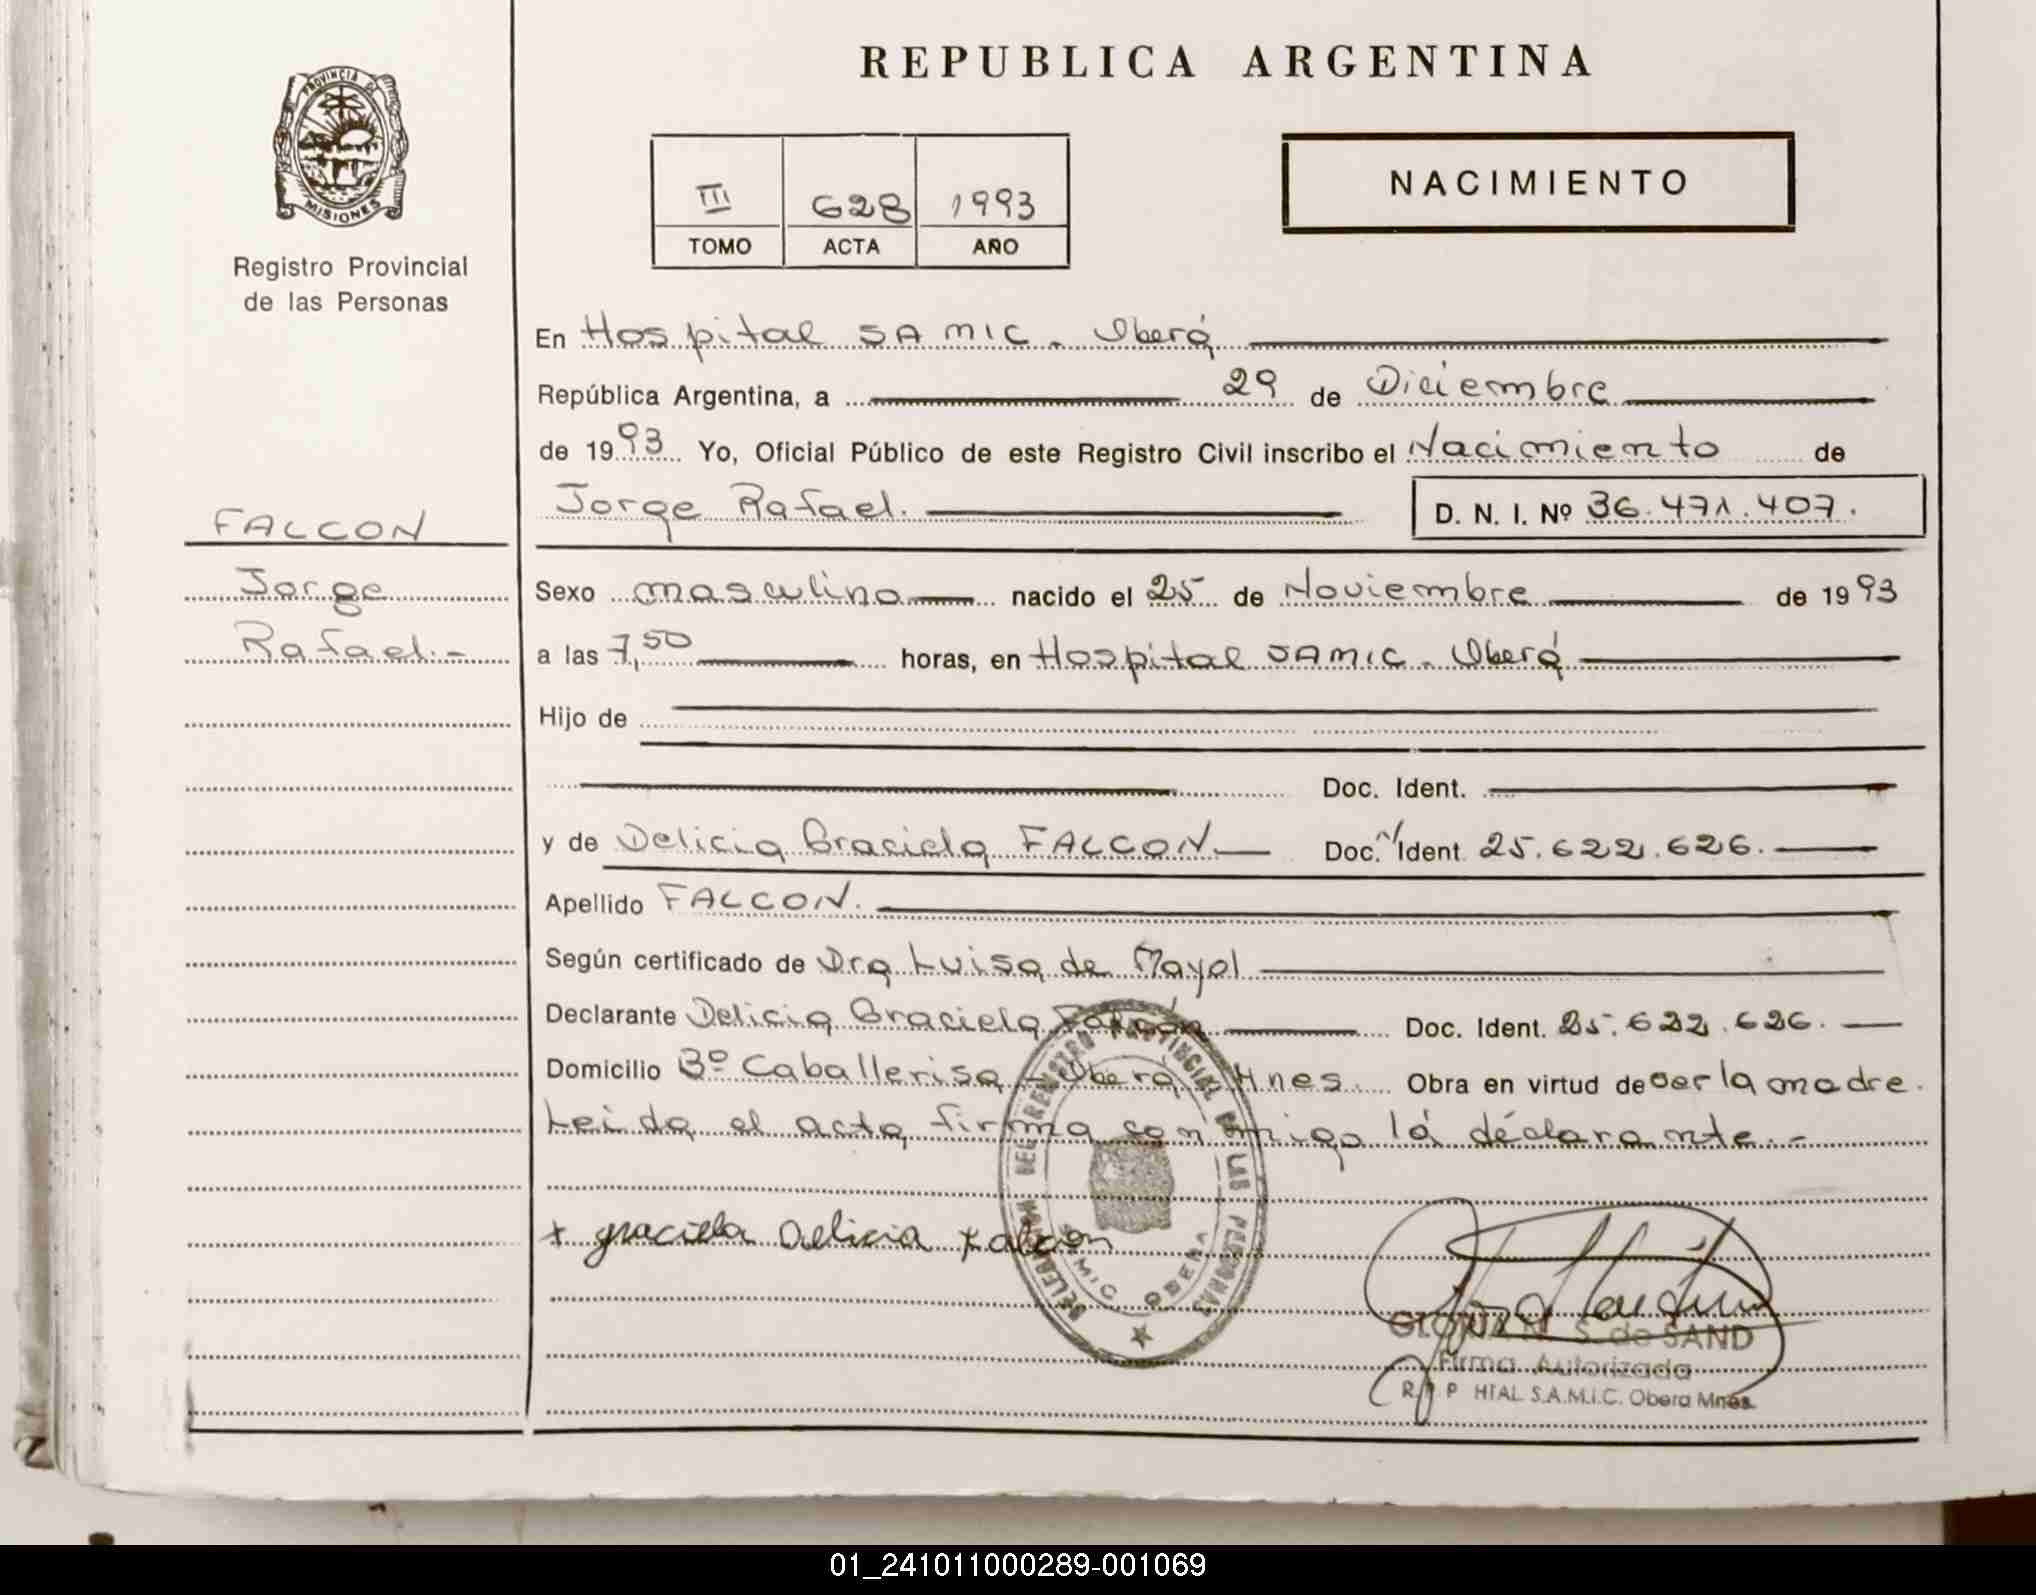 REPUBLICA ARGENTINA
PROVINCIA DE
MISIONES
Registro Provincial
de las Personas
III 628 1993
TOMO ACTA AÑO
NACIMIENTO
En Hospital SAMIC. Oberá
República Argentina, a 29 de Diciembre
de 1993 Yo, Oficial Público de este Registro Civil inscribo el Nacimiento de
Jorge Rafael. D. N. I. Nº 36.471.407.
FALCON
Jorge
Rafael.-
Sexo masculino nacido el 25 de Noviembre de 1993
a las 7,50 horas, en Hospital SAMIC. Oberá
Hijo de
Doc. Ident.
y de Delicia Graciela FALCON. Doc. Ident. 25.622.626.
Apellido FALCON.
Según certificado de Dra Luisa de Mayol
Declarante Delicia Graciela Falcón Doc. Ident. 25.622.626.
Domicilio Bº Caballerisa - Oberá Mnes. Obra en virtud de ser la madre.
Leida el acta firma conmigo la declarante.-
+ graciela delicia Falcon
DELEGACION DEL REGISTRO PROVINCIAL DE LAS PERSONAS
SAMIC OBERA
S. de SAND
Firma Autorizada
R. P. P HTAL S.A.M.I.C. Obera Mnes.
01_241011000289-001069